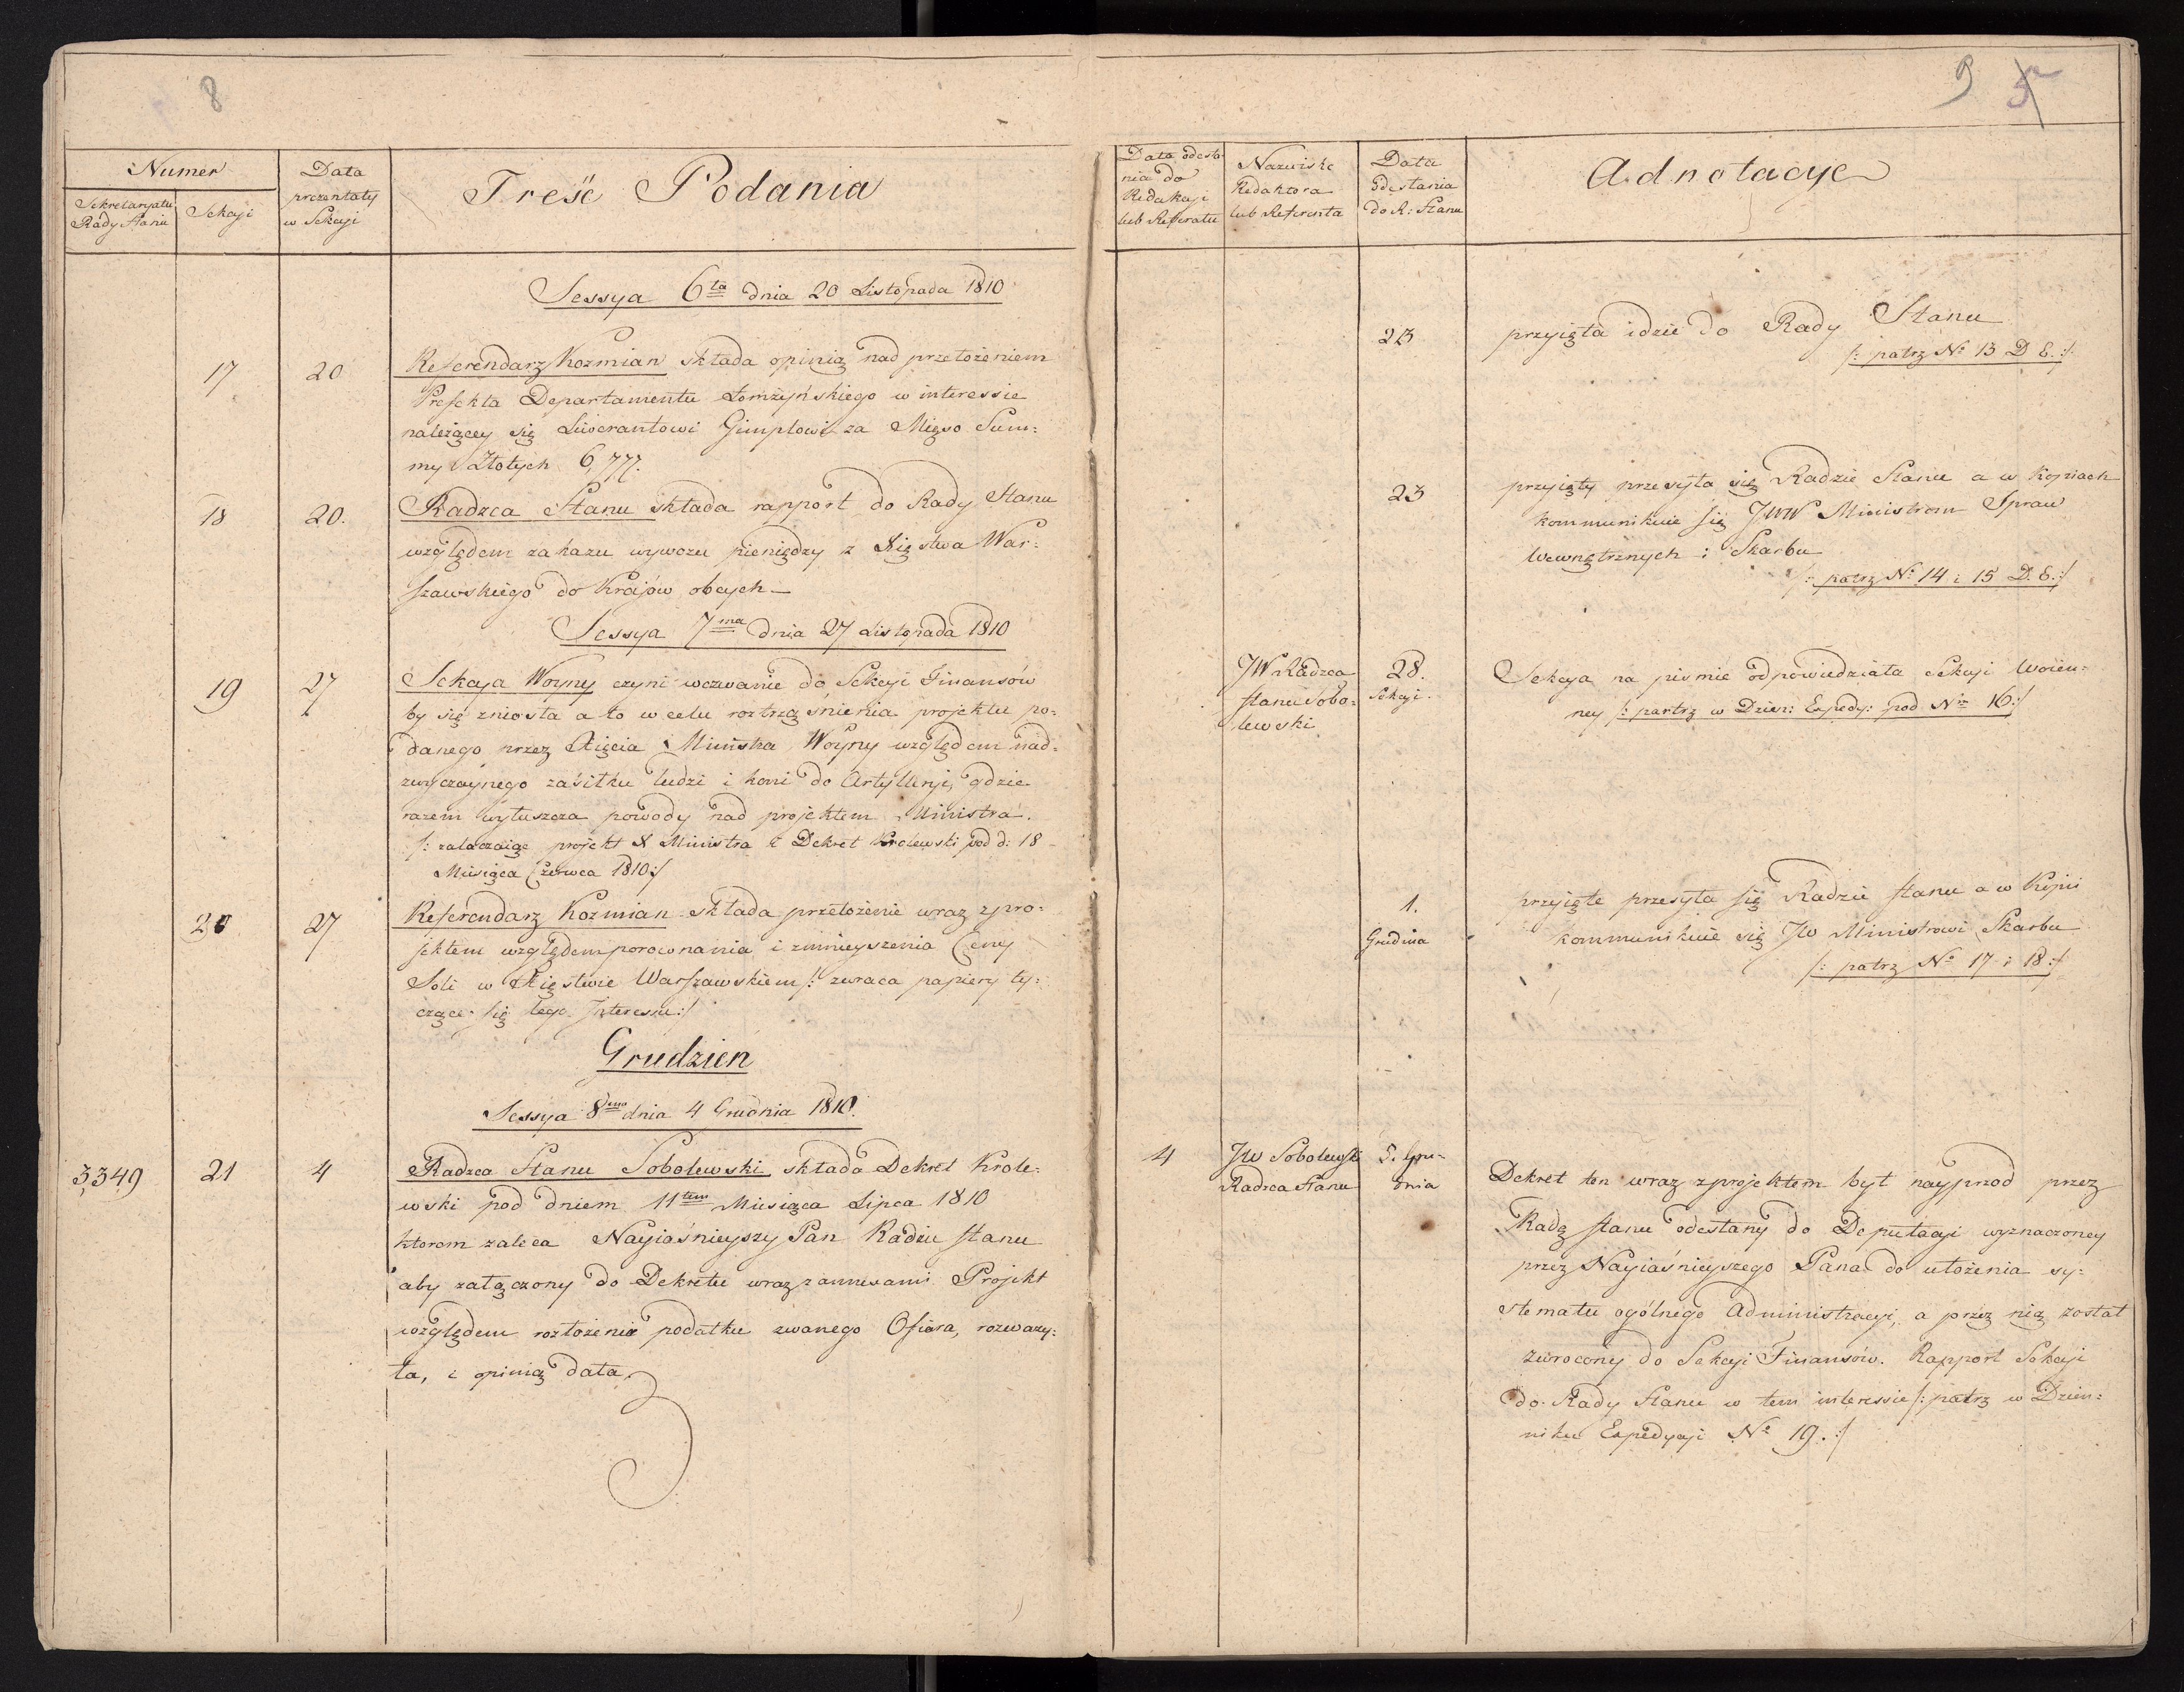 8
Numer
Sekretaryatu
Rady Stanu
Sekcyi
Data
prezentaty
w Sekcyi
Treść Podania
Sessya 6ta dnia 20 Listopada 1810
17
20
Referendarz Kozmian składa opinią nad przełożeniem
Prefekta Departamentu Łomżyńskiego w interessie
należącey się Liwerantowi Gimplowi za Mięso Sum:
my Złotych 6,777.
18
20.
Radzca Stanu składa rapport do Rady Stanu
względem zakazu wywozu pieniędzy z Xięstwa War:
szawskiego do Krajów obcych
Sessya 7ma dnia 27 Listopada 1810
19
27
Sekcya Woyny czyni wezwanie do Sekcyi Finansów
by się zniosła a to w celu roztrząśnienia projektu po:
danego przez Xięcia Ministra Woyny względem nad:
zwyczaynego zasiłku ludzi i koni do Artylleryi, gdzie
razem wyłuszcza powody nad projektem Ministra.
/: załączaiąc projekt X Ministra i Dekret Krolewski pod d: 18
Miesiąca Czerwca 1810 :/
20
27
Referendarz Kozmian składa przełożenie wraz z pro:
jektem względem porownania i zmnieyszenia Ceny
Soli w Xięstwie Warszawskiem /: zwraca papiery ty:
czące się tego Interessu :/
Grudzien
Sessya 8ma dnia 4 Grudnia 1810.
3,349
21
4
Radzca Stanu Sobolewski składa Dekret Krole:
wski pod dniem 11tem Miesiąca Lipca 1810
ktorem zaleca Nayiaśnieyszy Pan Radzie Stanu
aby załączony do Dekretu wraz z annexami Projekt
względem rozłożenia podatku zwanego Ofiara, rozważy:
ła, i opinią dała.
9 5
Data odesła
nia do
Redakcyi
lub Referatu
Nazwisko
Redaktora
lub Referenta
Data
Odesłania
do R: Stanu
Adnotacye
23
przyięta idzie do Rady Stanu
/: patrz No 13 D E. :/
23
przyięty przesyła się Radzie Stanu a w Kopiach
kommunikuie się JWW Ministrom Spraw
Wewnętrznych i Skarbu
/: patrz No 14 i 15 D. E. :/
JW Radzca
Stanu Sobo:
lewski
28.
Sekcyi.
Sekcya na pismie odpowiedziała Sekcyi Woien:
ney /: partrz w Dzien: Expedy: pod Nr 16 :/
1.
Grudnia
przyięte przesyła się Radzie Stanu a w Kopii
kommunikuie się JW Ministrowi Skarbu
/: patrz No 17 i 18 :/
4
JW Sobolewski
Radzca Stanu
5. Gru-
dnia
Dekret ten wraz z projektem był nayprzod przez
Radę Stanu odesłany do Deputacyi wyznaczoney
przez Nayiaśnieyszego Pana do ułożenia sy:
stematu ogólnego Administracyi, a przez nią został
zwrocony do Sekcyi Finansów. Rapport Sekcyi
do Rady Stanu w tem interessie /: patrz w Dzien:
niku Expedycyi No 19. :/